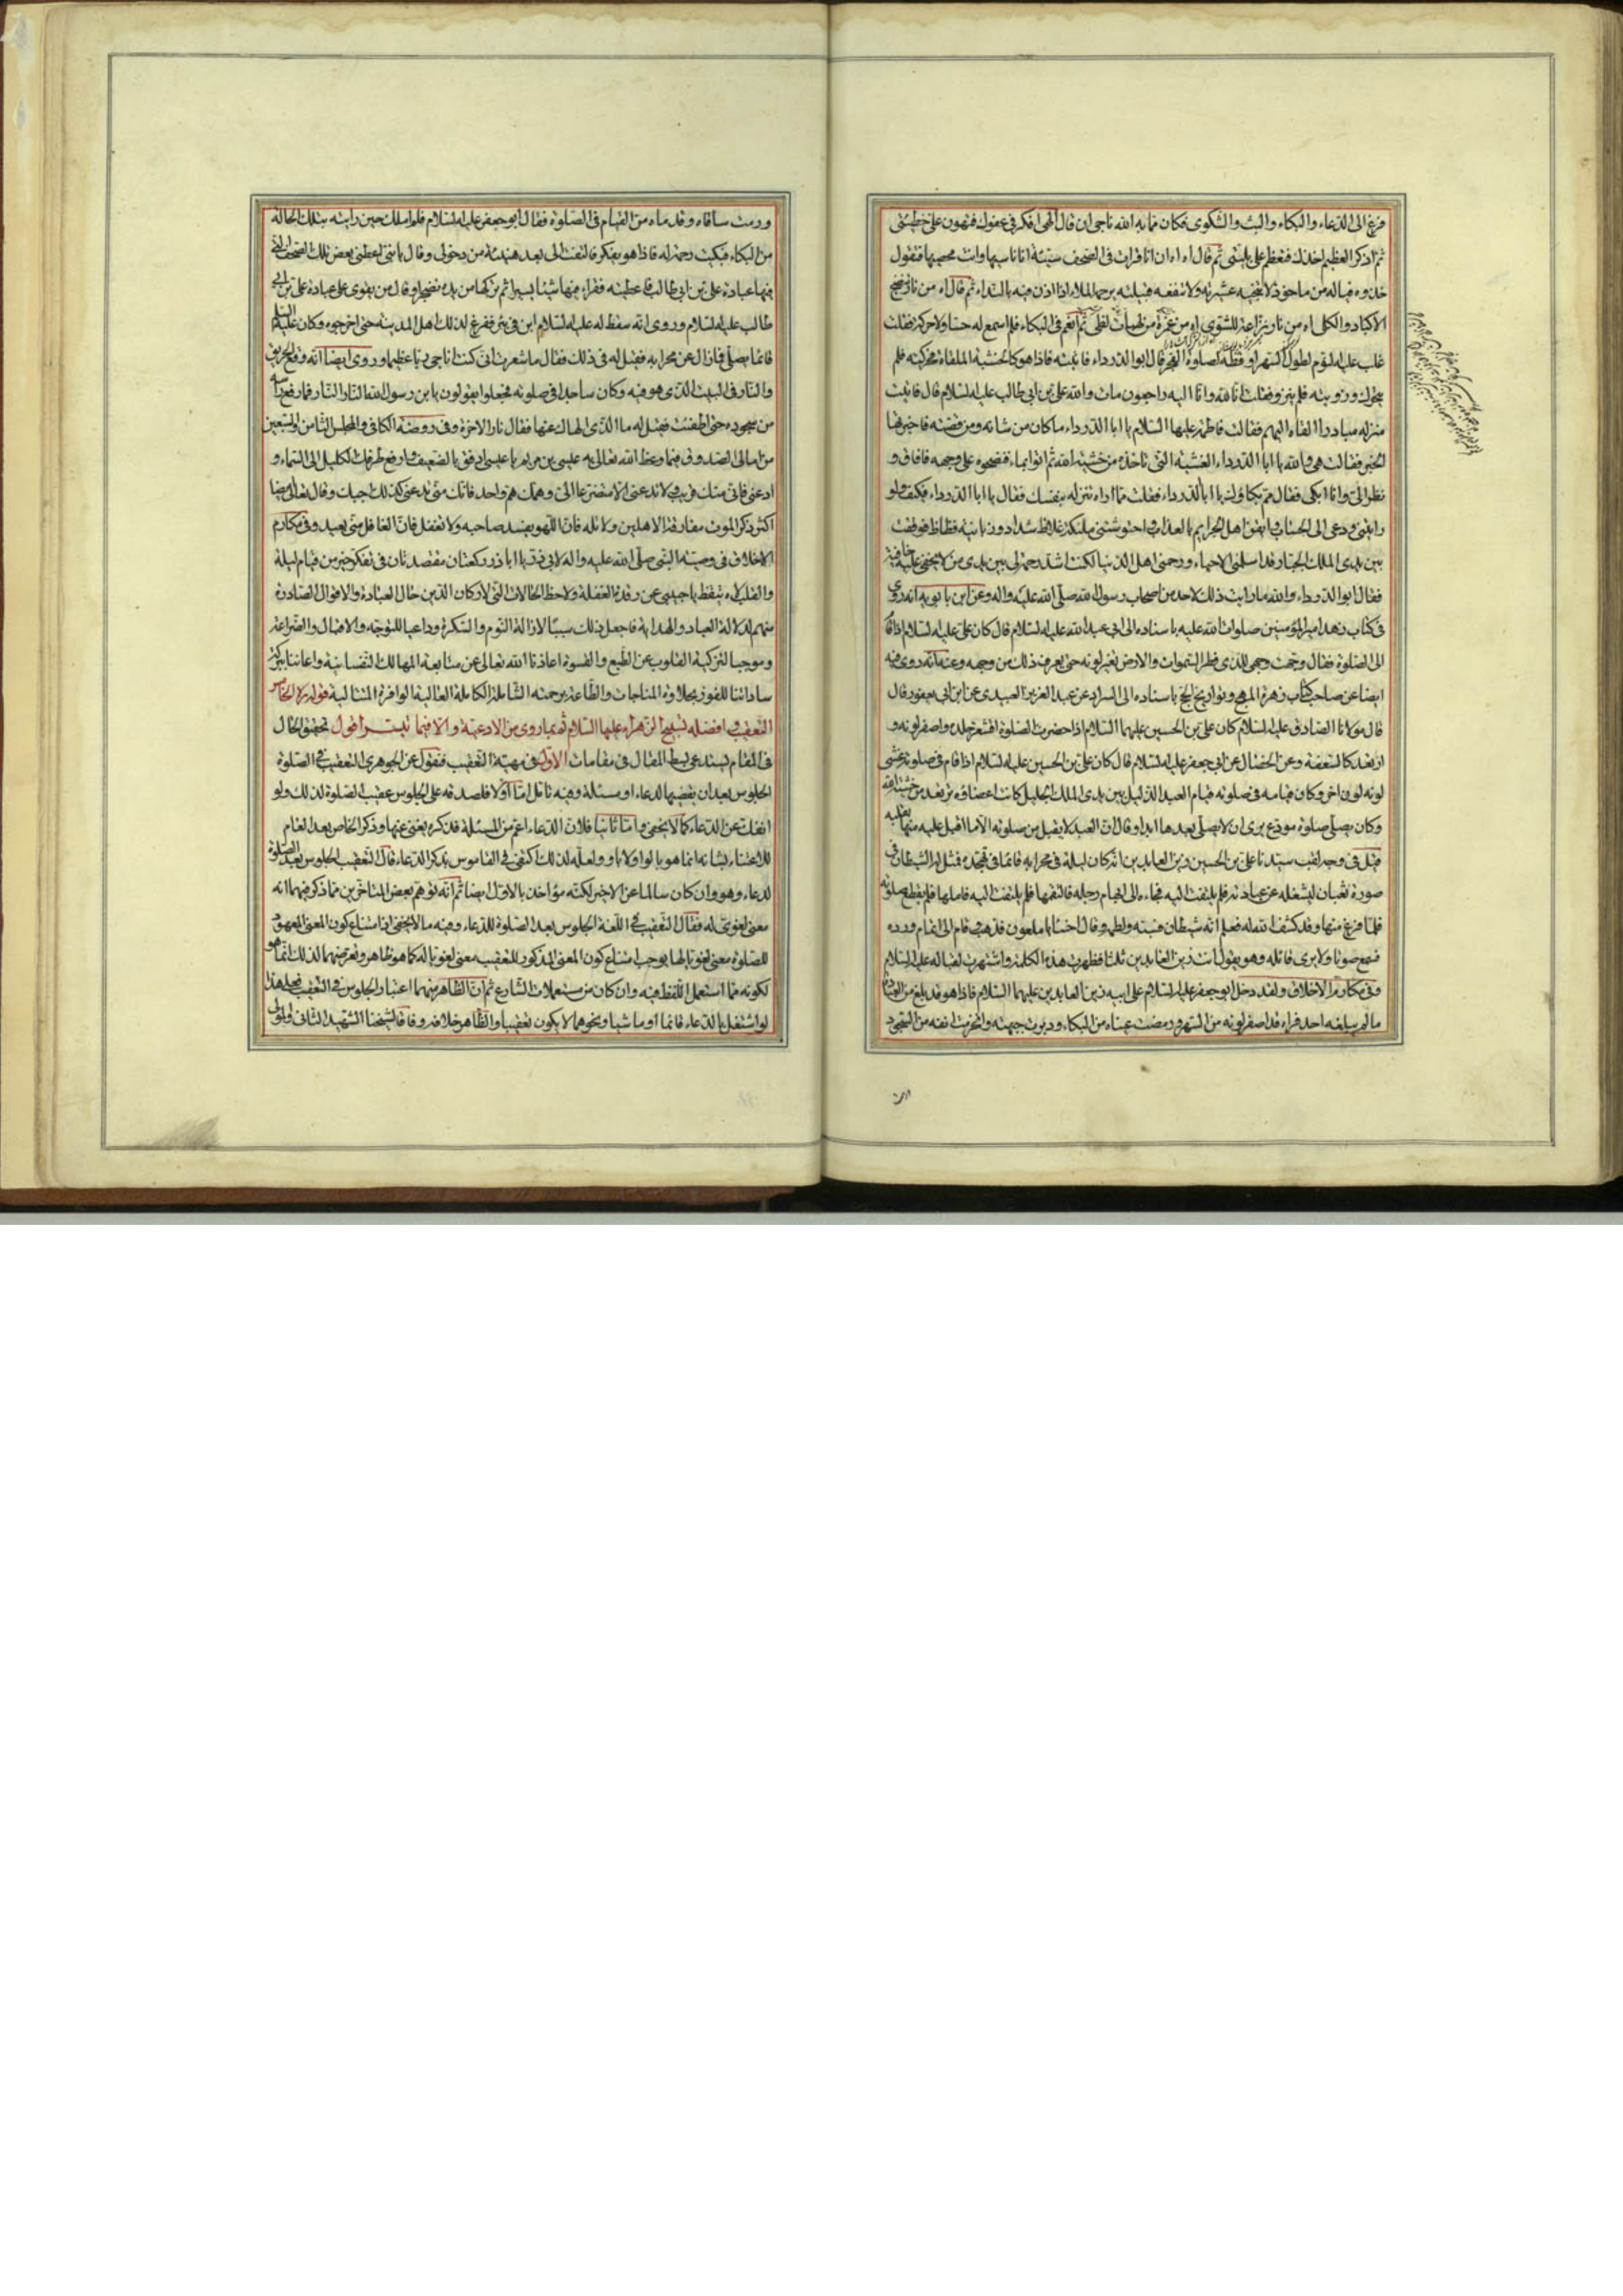 فزع الى الدعاء والبكاء والبث والشكوى فكان مما به الله ناجى ان قال الهى افكر فى عفوك فتهون على خطيئتى
ثم اذكر العظيم اخذك فتعظم على بليتى ثم قال اه اه ان انا قرات فى الصحف سيئة انا ناسيها وانت محصيها فتقول
خذوه فياله من ماخوذ لا تنجيه عشيرته ولا تنفعه قبيلته يرحمه الملاء اذا اذن فيه بالنداء ثم قال اه من نار تنضج
الاكباد والكلى اه من نار نزاعة للشوى اه من غمرة من لهبات لظى ثم انغمر فى البكاء فلم اسمع له حسا ولا حركة فقلت
غلب عليه النوم لطول السهر اوقظه لصلوة الفجر قال ابو الدرداء فاتيته فاذا هو كالخشبة الملقاة فحركته فلم
يتحرك وزويته فلم ينزو فقلت انا لله وانا اليه راجعون مات والله على بن ابى طالب عليه السلام قال فاتيت
منزله مبادرا انعاه اليهم فقالت فاطمة عليها السلام يا ابا الدرداء ما كان من شانه ومن قصته فاخبرتها
الخبر فقالت هى والله يا ابا الدرداء الغشية التى تاخذه من خشية الله ثم اتوا بماء فنضحوه على وجهه فافاق و
نظر الى وانا ابكى فقال مم بكاؤك يا ابا الدرداء فقلت مما اراه تنزله بنفسك فقال يا ابا الدرداء فكيف ولو
رايتنى ودعى الى الحساب وايقن اهل الجرايم بالعذاب واحتوشتنى ملئكة غلاظ شداد وزبانية فظاظ فوقفت
بين يدى الملك الجبار قد اسلمنى الاحباء ورحمنى اهل الدنيا لكنت اشد رحمة لى بين يدى من لا يخفى عليه خافية
فقال ابو الدرداء والله ما رايت ذلك لاحد من اصحاب رسول الله صلى الله عليه واله وعن ابن بابويه انه روى
فى كتاب زهد امير المؤمنين صلوات الله عليه باسناده الى ابى عبد الله عليه السلام قال كان على عليه السلام اذا قام
الى الصلوة فقال وجهت وجهى للذى فطر السموات والارض تغير لونه حتى يعرف ذلك من وجهه وعنه انه روى فيه
ايضا عن صاحب كتاب زهرة المهج وتواريخ الحجج باسناده الى السراد عن عبد العزيز العبدى عن ابن ابى يعفور قال
قال مولانا الصادق عليه السلام كان على بن الحسين عليهما السلام اذا حضرت الصلوة اقشعر جلده واصفر لونه و
ارتعد كالسعفة وعن الخصال عن ابى جعفر عليه السلام قال كان على بن الحسين عليه السلام اذا قام فى صلوته غشى
لونه لون اخر وكان قيامه فى صلوته قيام العبد الذليل بين يدى الملك الجليل كانت اعضاؤه ترتعد من خشية الله
وكان يصلى صلوة مودع يرى ان لا يصلى بعدها ابدا وقال ان العبد لا يقبل من صلوته الا ما اقبل عليه منها بقلبه
قيل فى وجه لقب سيدنا على بن الحسين بزين العابدين انه كان ليلة فى محرابه قائما فى تهجده فمثل له الشيطان فى
صورة ثعبان ليشغله عن عبادته فلم يلتفت اليه فجاء الى ابهام رجله فالتقمها فلم يلتفت اليه فالمها فلم يقطع صلوته
فلما فرغ منها وقد كشف الله له فعلم انه شيطان فسبه ولطمه وقال اخسأ يا ملعون فذهب وقام الى اتمام ورده
فسمع صوتا ولا يرى قائله وهو يقول انت زين العابدين ثلثا فظهرت هذه الكلمة واشتهرت لقبا له عليه السلام
وفى مكارم الاخلاق ولقد دخل ابو جعفر عليه السلام على ابيه زين العابدين عليهما السلام فاذا هو قد بلغ من العبادة
ما لم يبلغه احد فراه قد اصفر لونه من السهر ورمضت عيناه من البكاء ودبرت جبهته وانخرمت انفه من السجود
ورمت ساقاه وقدماه من القيام فى الصلوة فقال ابو جعفر عليه السلام فلم املك حين رايته بتلك الحالة
من البكاء فبكيت رحمة له فاذا هو يفكر فالتفت الى بعد هنيئة من دخولى وقال يا بنى اعطنى بعض تلك الصحف التى
فيها عبادة على بن ابى طالب فاعطيته فقراء فيها شيئا يسيرا ثم تركها من يده تضجرا وقال من يقوى على عبادة على بن ابى
طالب عليه السلام وروى انه سقط له عليه السلام ابن فى بئر ففزع لذلك اهل المدينة حتى اخرجوه وكان عليه السلام
قائما يصلى فما زال عن محرابه فقيل له فى ذلك فقال ما شعرت انى كنت اناجى ربا عظيما وروى ايضا انه وقع الحريق
والنار فى البيت الذى هو فيه وكان ساجدا فى صلوته فجعلوا يقولون يا بن رسول الله النار النار فما رفع راسه
من سجوده حتى اطفئت فقيل له ما الذى الهاك عنها فقال نار الاخرة وفى روضة الكافى والمجلس الثامن والسبعين
من امالى الصدوق فيما وعظ الله تعالى به عيسى بن مريم يا عيسى ارفق بالضعيف وارفع طرفك الكليل الى السماء و
ادعنى فانى منك قريب ولا تدعنى الا متضرعا الى وهمك هم واحد فانك متى تدعنى كذلك اجبك وقال تعالى ايضا
اكثر ذكر الموت مفارقة الاهلين ولا تله فان اللهو يفسد صاحبه ولا تغفل فان الغافل منى بعيد وفى مكارم
الاخلاق فى وصية النبى صلى الله عليه واله لابى ذر يا ابا ذر ركعتان مقتصدتان فى تفكر خير من قيام ليلة
والقلب لاه تيقظ يا حبيبى عن رقدة الغفلة ولاحظ الحالات التى لاركان الدين حال العبادة والاقوال الصادرة
منهم لدلالة العباد والهداية فاجعل ذلك سببا لازالة النوم والسكرة وداعيا للتوجه والاقبال والضراعة
وموجبا لتزكية القلوب عن الطبع والقسوة اعاذنا الله تعالى عن متابعة المهالك النفسانية واعاننا ببركة
ساداتنا للفوز بحلاوة المناجات والطاعة برحمته الشاملة الكاملة العالية الوافرة المتتالية قوله ره الخامس
التعقيب وافضله تسبيح الزهراء عليها السلام ثم بما روى من الادعية والا فبما تيسر اقول تحقيق الحال
فى المقام يستدعى بسط المقال فى مقامات الاول فى مهية التعقيب فنقول عن الجوهرى التعقيب فى الصلوة
الجلوس بعد ان يقضيها لدعاء او مسئلة وفيه تامل اما اولا فلصدقه على الجلوس عقيب الصلوة لذلك ولو
انفك عن الدعاء كما لا يخفى واما ثانيا فلان الدعاء اعم من المسئلة فذكره يغنى عنها وذكر الخاص بعد العام
للاعتناء بشانه انما هو بالواو لا باو ولعله لذلك اكتفى فى القاموس بذكر الدعاء قال التعقيب الجلوس بعد الصلوة
لدعاء وهو وان كان سالما عن الاخير لكنه مؤاخذ بالاول ايضا ثم انه توهم بعض المتاخرين مما ذكر فيهما انه
معنى لغوى له فقال التعقيب فى اللغة الجلوس بعد الصلوة للدعاء وفيه ما لا يخفى اذ امتناع كون المعنى المعهود
للصلوة معنى لغويا لها يوجب امتناع كون المعنى المذكور للتعقيب معنى لغويا له كما هو ظاهر وتعرضهما لذلك انما هو
لكونه مما استعمل اللفظ فيه وان كان من مستعملات الشارع ثم ان الظاهر منهما اعتبار الجلوس فى التعقيب فعلى هذا
لو اشتغل بالدعاء قائما او ماشيا ونحوهما لا يكون تعقيبا والظاهر خلافه وفاقا لشيخنا الشهيد الثانى